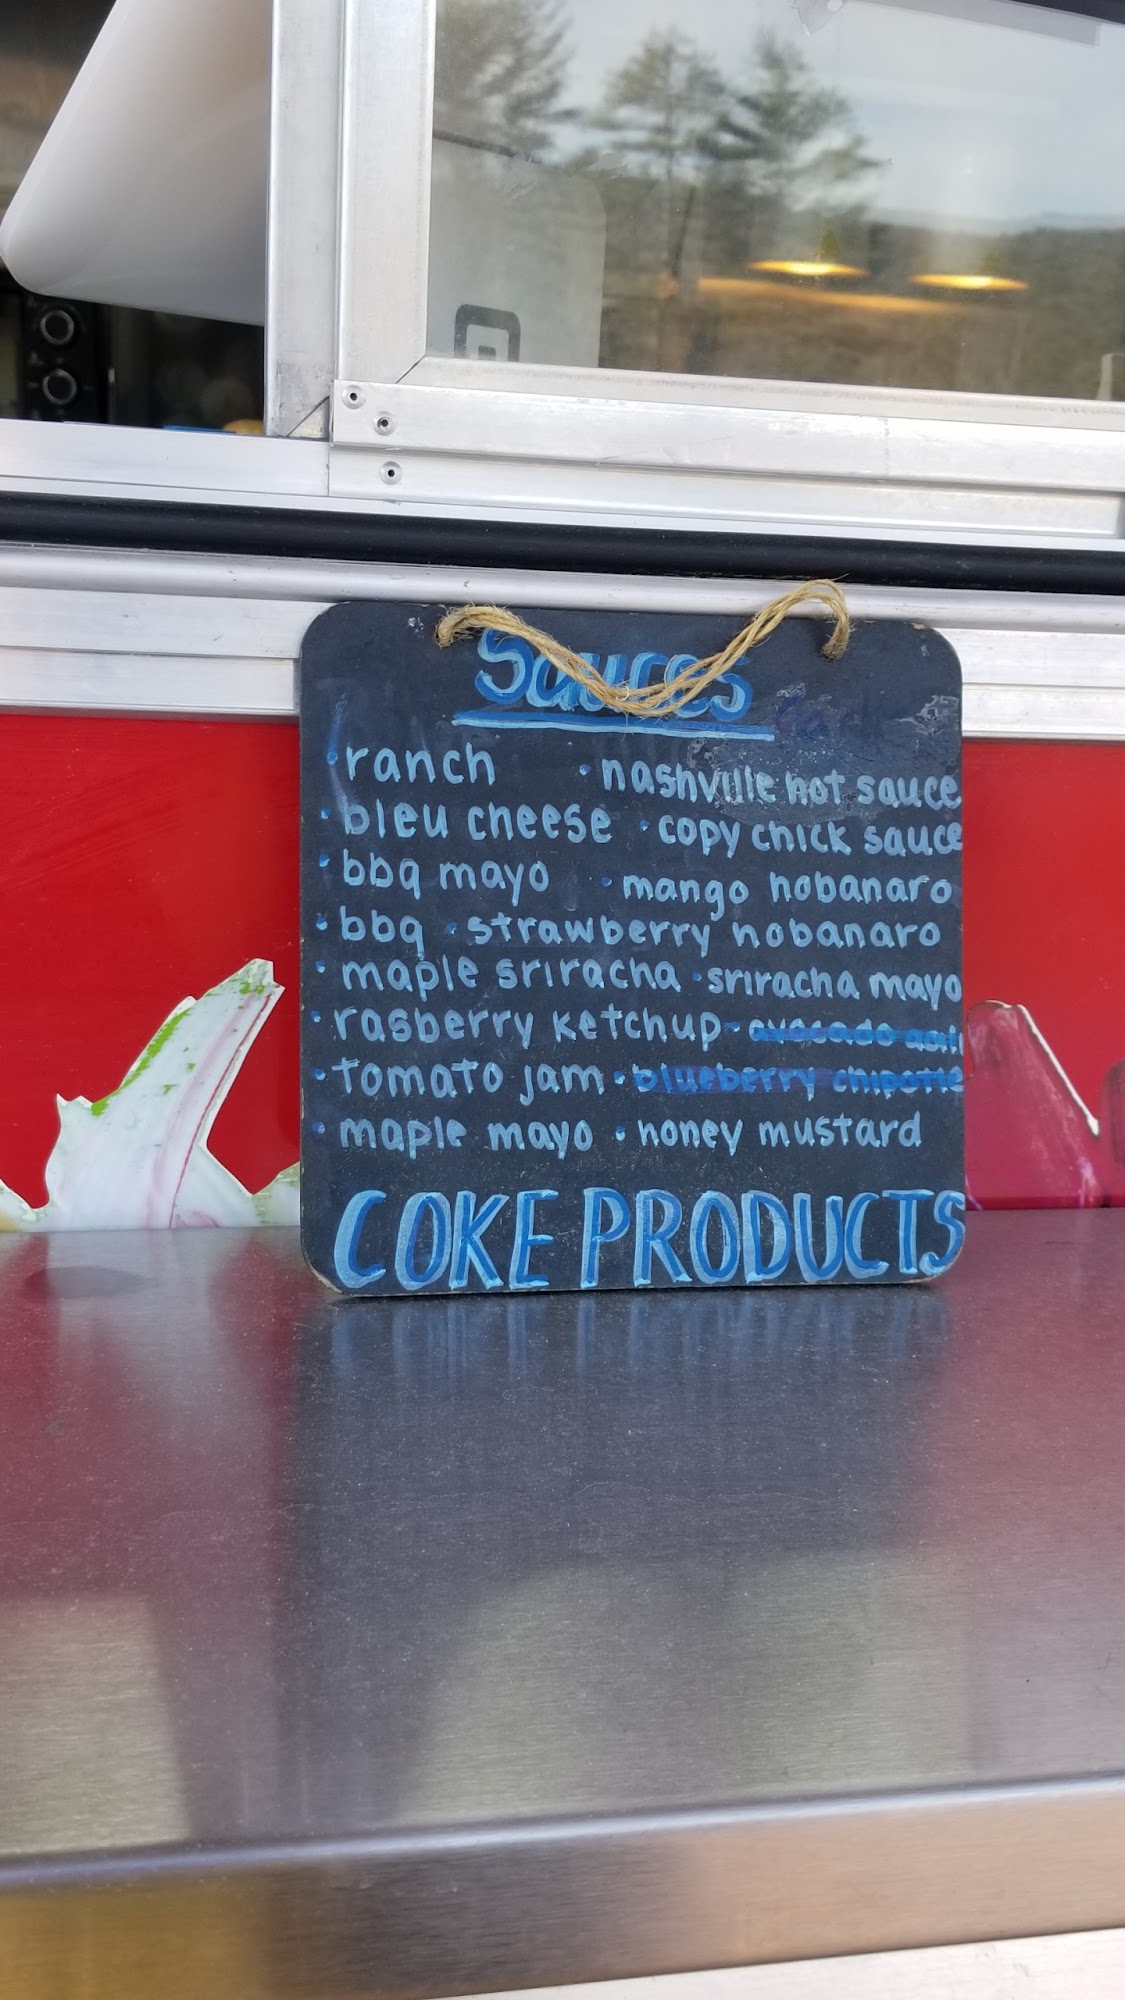 Sauces
• ranch • nashville hot sauce
• bleu cheese • copy chick sauce
• bbq mayo • mango hobanaro
• bbq • strawberry hobanaro
• maple sriracha • sriracha mayo
• rasberry ketchup • avocado aoli
• tomato jam • blueberry chipotle
• maple mayo • honey mustard
COKE PRODUCTS